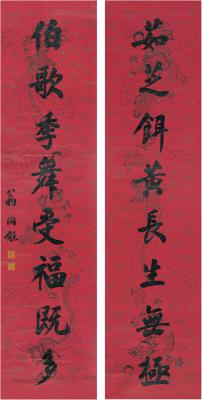 茹芝餌黃長生無極
伯歌季舞受福既多
翁同龢